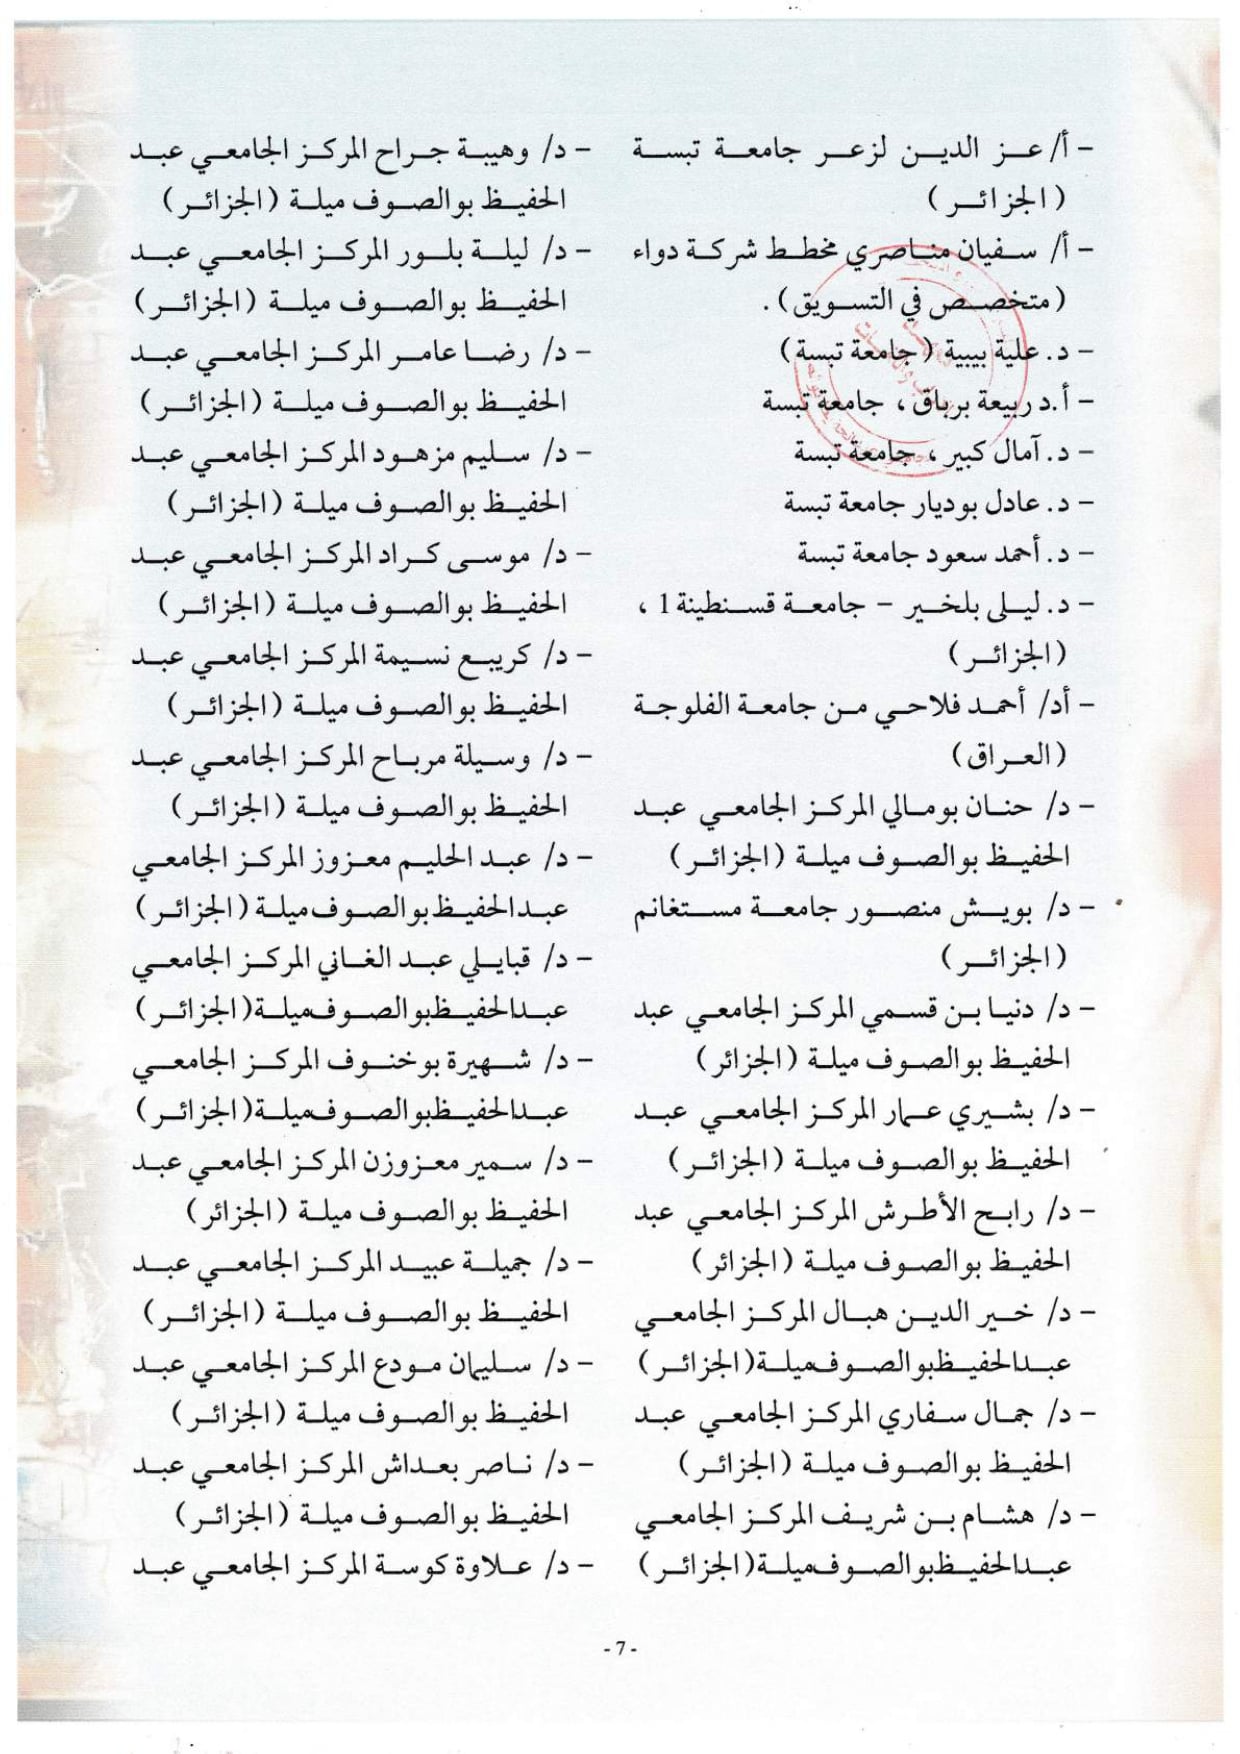 - أ/ عز الدين لزعر جامعة تبسة
(الجزائر)
- أ/ سفيان مناصري مخطط شركة دواء
(متخصص في التسويق).
- د. علية بيبية (جامعة تبسة)
- أ.د ربيعة برباق، جامعة تبسة
- د. آمال كبير، جامعة تبسة
- د. عادل بوديار جامعة تبسة
- د. أحمد سعود جامعة تبسة
- د. ليلى بلخير - جامعة قسنطينة 1،
(الجزائر)
- أد/ أحمد فلاحي من جامعة الفلوجة
(العراق)
- د/ حنان بومالي المركز الجامعي عبد
الحفيظ بوالصوف ميلة (الجزائر)
- د/ بويش منصور جامعة مستغانم
(الجزائر)
- د/ دنيا بن قسمي المركز الجامعي عبد
الحفيظ بوالصوف ميلة (الجزائر)
- د/ بشيري عمار المركز الجامعي عبد
الحفيظ بوالصوف ميلة (الجزائر)
- د/ رابح الأطرش المركز الجامعي عبد
الحفيظ بوالصوف ميلة (الجزائر)
- د/ خير الدين هبال المركز الجامعي
عبدالحفيظ بوالصوف ميلة (الجزائر)
- د/ جمال سفاري المركز الجامعي عبد
الحفيظ بوالصوف ميلة (الجزائر)
- د/ هشام بن شريف المركز الجامعي
عبدالحفيظ بوالصوف ميلة (الجزائر)
- د/ وهيبة جراح المركز الجامعي عبد
الحفيظ بوالصوف ميلة (الجزائر)
- د/ ليلة بلور المركز الجامعي عبد
الحفيظ بوالصوف ميلة (الجزائر)
- د/ رضا عامر المركز الجامعي عبد
الحفيظ بوالصوف ميلة (الجزائر)
- د/ سليم مزهود المركز الجامعي عبد
الحفيظ بوالصوف ميلة (الجزائر)
- د/ موسى كراد المركز الجامعي عبد
الحفيظ بوالصوف ميلة (الجزائر)
- د/ كريبع نسيمة المركز الجامعي عبد
الحفيظ بوالصوف ميلة (الجزائر)
- د/ وسيلة مرباح المركز الجامعي عبد
الحفيظ بوالصوف ميلة (الجزائر)
- د/ عبد الحليم معزوز المركز الجامعي
عبدالحفيظ بوالصوف ميلة (الجزائر)
- د/ قبايلي عبد الغاني المركز الجامعي
عبدالحفيظ بوالصوف ميلة (الجزائر)
- د/ شهيرة بوخنوف المركز الجامعي
عبدالحفيظ بوالصوف ميلة (الجزائر)
- د/ سمير معزوزن المركز الجامعي عبد
الحفيظ بوالصوف ميلة (الجزائر)
- د/ جميلة عبيد المركز الجامعي عبد
الحفيظ بوالصوف ميلة (الجزائر)
- د/ سليمان مودع المركز الجامعي عبد
الحفيظ بوالصوف ميلة (الجزائر)
- د/ ناصر بعداش المركز الجامعي عبد
الحفيظ بوالصوف ميلة (الجزائر)
- د/ علاوة كوسة المركز الجامعي عبد
- 7 -